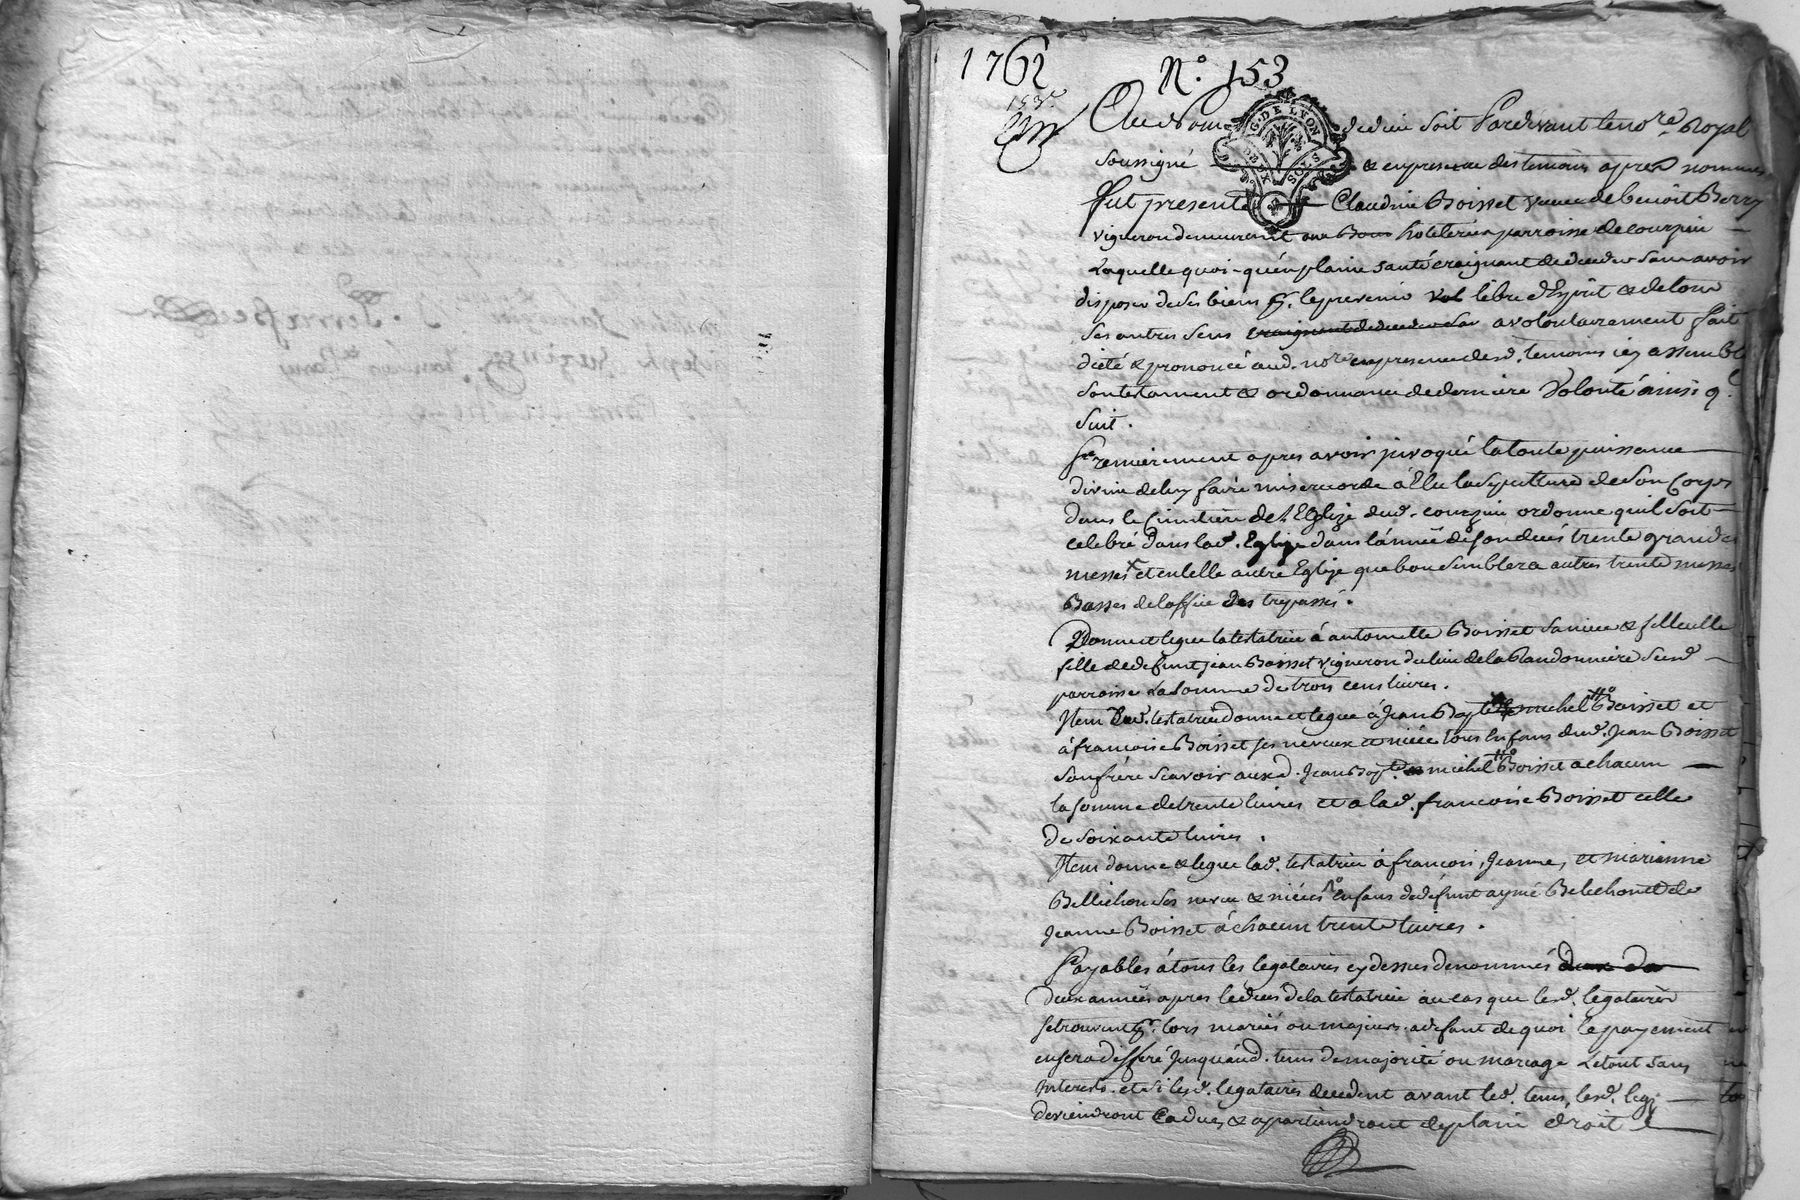 1762 N.° 153
Au Nom de dieu soit Pardevant le no.re Royal
soussigné & en presence des temoins apres nommés
fut presente Claudine Boisset veuve de benoit Berry
vigneron demeurant au Bou hotelerie parroisse de courzieu
Laquelle quoi-qu'en plaine santé craignant de deceder sans avoir
disposer de ses biens p.r le prevenir libre d'Esprit & de tous
ses autres sens craignant de deceder sans a volontairement fait
dicté & prononcé aud. no.re en presence desd. temoins icy assemblés
son testament & ordonnance de derniere volonté ainsi q.e
suit.
Premierement apres avoir invoqué la toute puissance
divine de luy faire misericorde á Elu la sepulture de son Corps
dans le Cimetiere de l'Eglize dud. courzieu ordonne quil soit
celebré dans lad. Eglize dans lánnée de son decés trente grandes
messes et en telle autre Eglize que bon semblera autres trente messes
Basses de loffice des trepassés.
Donne et legue la testatrice á antoinette Boisset sa niece & filleulle
fille de defunt jean Boisset vigneron du lieu de la Randonniere susd.
parroisse La somme de trois cens livres.
Item lad. testatrice donne et legue á Jean Bapt.e michel Boisset et
á francoise Boisset ses neveux et niéce tous enfans dud. Jean Boisset
son frére scavoir auxd. Jean Bapt.e & michel Boisset a chacun
la somme de trente livres et a lad. francoise Boisset celle
de soixante livres.
Item donne & legue lad. testatrice á francois, Jeanne, et marianne
Bellichon ses neveu & niéces enfans de defunt aymé Belichon et de
Jeanne Boisset á chacun trente livres.
Payables á tous les legataires cy dessus denommés deux da
deux années apres le deces de la testatrice au cas que lesd. legataires
se trouvent p.r lors mariés ou majeurs a defaut de quoi le payement
en sera differé jusquáud. tems de majorité ou mariage Le tout sans
interests. et si lesd. legataires decedent avant led. tems, lesd. legs
deviendront Caducs & appartiendront de plain droit
G. DE LYON
SOLS